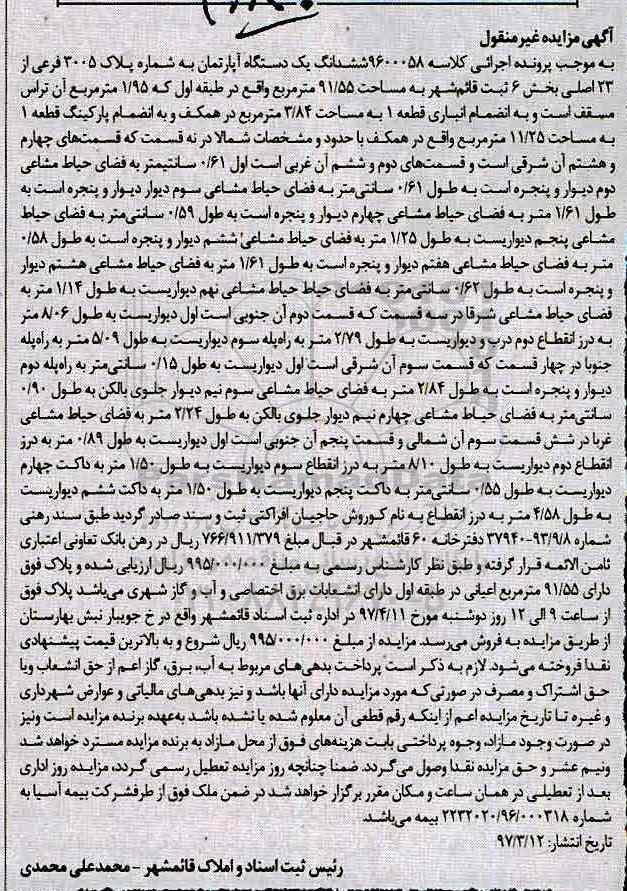 آگهی مزایده غیر منقول
به موجب پرونده اجرائی کلاسه ۹۶۰۰۰۵۸ ششدانگ یک دستگاه آپارتمان به شماره پلاک ۳۰۰۵ فرعی از
۲۳ اصلی بخش ۶ ثبت قائم‌شهر به مساحت ۹۱/۵۵ مترمربع واقع در طبقه اول که ۱/۹۵ مترمربع آن تراس
مسقف است و به انضمام انباری قطعه ۱ به مساحت ۳/۸۴ مترمربع در همکف و به انضمام پارکینگ قطعه ۱
به مساحت ۱۱/۲۵ مترمربع واقع در همکف با حدود و مشخصات شمالا در نه قسمت که قسمت‌های چهارم
و هشتم آن شرقی است و قسمت‌های دوم و ششم آن غربی است اول ۰/۶۱ سانتیمتر به فضای حیاط مشاعی
دوم دیوار و پنجره است به طول ۰/۶۱ سانتی‌متر به فضای حیاط مشاعی سوم دیوار دیوار و پنجره است به
طول ۱/۶۱ متر به فضای حیاط مشاعی چهارم دیوار و پنجره است به طول ۰/۵۹ سانتی‌متر به فضای حیاط
مشاعی پنجم دیواریست به طول ۱/۲۵ متر به فضای حیاط مشاعی ششم دیوار و پنجره است به طول ۰/۵۸
متر به فضای حیاط مشاعی هفتم دیوار و پنجره است به طول ۱/۶۱ متر به فضای حیاط مشاعی هشتم دیوار
و پنجره است به طول ۰/۶۲ سانتی‌متر به فضای حیاط حیاط مشاعی نهم دیواریست به طول ۱/۱۴ متر به
فضای حیاط مشاعی شرقا در سه قسمت که قسمت دوم آن جنوبی است اول دیواریست به طول ۸/۰۶ متر
به درز انقطاع دوم درب و دیواریست به طول ۲/۷۹ متر به راه‌پله سوم دیواریست به طول ۵/۰۹ متر به راه‌پله
جنوبا در چهار قسمت که قسمت سوم آن شرقی است اول دیواریست به طول ۰/۱۵ سانتی‌متر به راه‌پله دوم
دیوار و پنجره است به طول ۲/۸۴ متر به فضای حیاط مشاعی سوم نیم دیوار جلوی بالکن به طول ۰/۹۰
سانتی‌متر به فضای حیاط مشاعی چهارم نیم دیوار جلوی بالکن به طول ۲/۲۴ متر به فضای حیاط مشاعی
غربا در شش قسمت سوم آن شمالی و قسمت پنجم آن جنوبی است اول دیواریست به طول ۰/۸۹ متر به درز
انقطاع دوم دیواریست به طول ۸/۱۰ متر به درز انقطاع سوم دیواریست به طول ۱/۵۰ متر به داکت چهارم
دیواریست به طول ۰/۵۵ سانتی‌متر به داکت پنجم دیواریست به طول ۱/۵۰ متر به داکت ششم دیواریست
به طول ۴/۵۸ متر به درز انقطاع به نام کوروش حاجیان افراکتی ثبت و سند صادر گردید طبق سند رهنی
شماره ۹۳/۹/۸-۳۷۹۴۰ دفترخانه ۶۰ قائمشهر در قبال مبلغ ۷۶۶/۹۱۱/۳۷۹ ریال در رهن بانک تعاونی اعتباری
ثامن الائمه قرار گرفته و طبق نظر کارشناس رسمی به مبلغ ۹۹۵/۰۰۰/۰۰۰ ریال ارزیابی شده و پلاک فوق
دارای ۹۱/۵۵ مترمربع اعیانی در طبقه اول دارای انشعابات برق اختصاصی و آب و گاز شهری می‌باشد پلاک فوق
از ساعت ۹ الی ۱۲ روز دوشنبه مورخ ۹۷/۴/۱۱ در اداره ثبت اسناد قائمشهر واقع در خ جویبار نبش بهارستان
از طریق مزایده به فروش می‌رسد. مزایده از مبلغ ۹۹۵/۰۰۰/۰۰۰ ریال شروع و به بالاترین قیمت پیشنهادی
نقدا فروخته می‌شود. لازم به ذکر است پرداخت بدهی‌های مربوط به آب، برق، گاز اعم از حق انشعاب ویا
حق اشتراک و مصرف در صورتی‌که مورد مزایده دارای آنها باشد و نیز بدهی‌های مالیاتی و عوارض شهرداری
و غیره تا تاریخ مزایده اعم از اینکه رقم قطعی آن معلوم شده یا نشده باشد به‌عهده برنده مزایده است ونیز
در صورت وجود مازاد، وجوه پرداختی بابت هزینه‌های فوق از محل مازاد به برنده مزایده مسترد خواهد شد
ونیم عشر و حق مزایده نقدا وصول می‌گردد. ضمنا چنانچه روز مزایده تعطیل رسمی گردد، مزایده روز اداری
بعد از تعطیلی در همان ساعت و مکان مقرر برگزار خواهد شد در ضمن ملک فوق از طرفشرکت بیمه آسیا به
شماره ۲۲۳۲۰۲۰/۹۶/۰۰۰۳۱۸ بیمه می‌باشد.
تاریخ انتشار: ۹۷/۳/۱۲
رئیس ثبت اسناد و املاک قائمشهر - محمدعلی محمدی